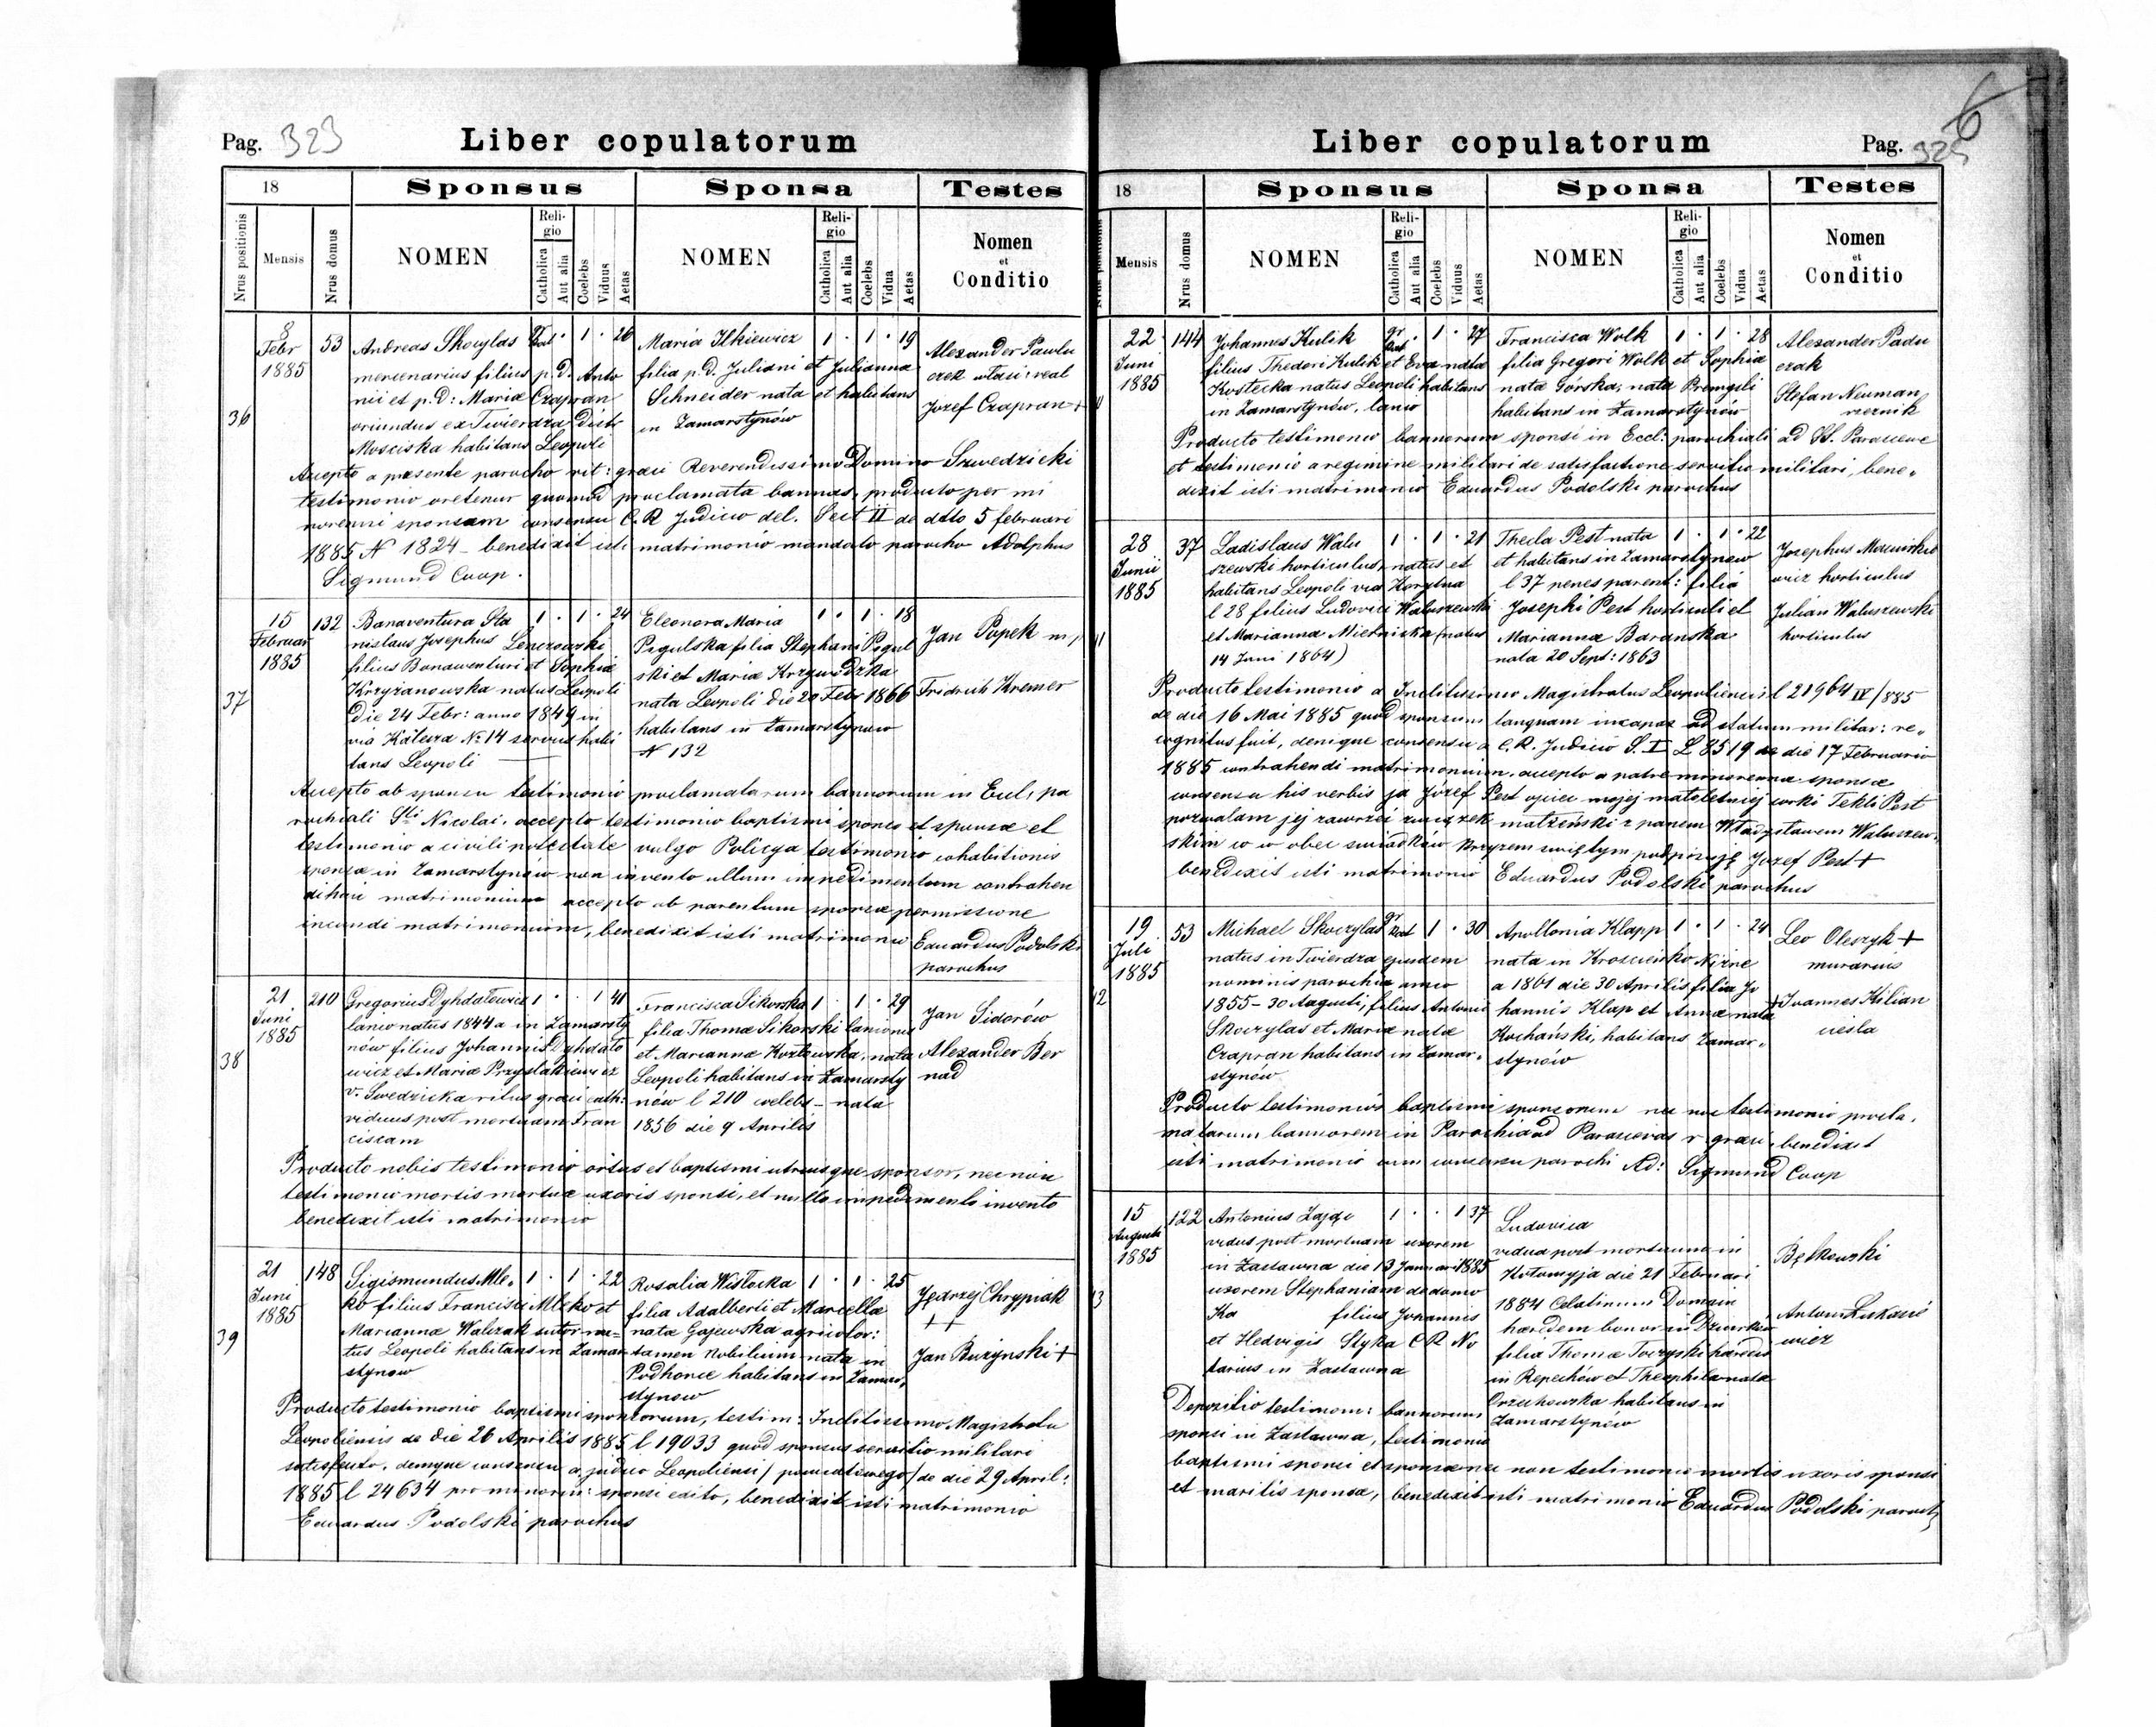 Pag. 323
Liber copulatorum
18
Sponsus
Sponsa
Testes
Nrus positionis
Mensis
Nrus domus
NOMEN
Religio
Catholica
Aut alia
Coelebs
Viduus
Aetas
NOMEN
Religio
Catholica
Aut alia
Coelebs
Vidua
Aetas
Nomen
et
Conditio
36
8 Febr 1885
53
Andreas Skoczylas
mercenarius filius p.d. Anto
nii et p.d: Mariæ Czapran
oriundus ex Twierdza Distr
Mosciska habitans Leopoli
1 · 26
Maria Ilkiewicz
filia p.d. Juliani et Julianna
Schneider nata et habitans
in Zamarstynów
1 · 1 · 19
Alexander Pawlu
czek
Jozef Czapran +
Accepto a presente parocho rit: græci Reverendissimo Domino Szwedzicki
testimonio oretenus quomod proclamata bannas, producto per mi
norenni sponsam consensu C.R Judicio del. Sect II de dtto 5 februari
1885 N 1824 – benedixit isti matrimonio mandato parocho Adolphus
Sigmund Coop.
37
15 Februar 1885
132
Banaventura Sta
nislaus Josephus Lenczowski
filius Bonawenturi et Sophiæ
Krzyżanowska natus Leopoli
die 24 Febr: anno 1849 in
via Kaleza No 14 servus habi
tans Leopoli
1 · 1 · 24
Eleonora Maria
Pigulska filia Stephani Pigul
ski et Mariæ Krzywdzka
nata Leopoli die 20 Febr 1866
habitans in Zamarstynow
N 132
1 · 1 · 18
Jan Papek
Fridrich Kremer
Accepto ab sponsu testimonio proclamatarum bannorum in Eccl, pa
rochiali Sti Nicolai, accepto testimonio baptismi sponso et sponsæ et
testimonio a civili potestate vulgo Policya testimonio cohabitionis
sponsæ in Zamarstynów non invento ullum impedimentum contrahen
di huic matrimonium accepto ab parentum sponsæ permissione
ineundi matrimonium, benedixit isti matrimonio Eduardus Podolski
parochus
38
21 Juni 1885
210
Gregorius Dyhdałowicz
lanio natus 1844 a in Zamarsty
nów filius Johannis Dyhdało
wicz et Mariæ Przyslakiewicz
v. Swedzicka ritus græci cath:
viduus post mortuam Fran
ciscam
1 · · 1 41
Francisca Sikorska
filia Thomæ Sikorski lanionis
et Mariannæ Kozłowska, nata
Leopoli habitans in Zamarsty
nów l 210 celebs – nata
1856 die 9 Aprilis
1 · 1 · 29
Jan Sidorów
Alexander Ber
nad
Producto nobis testimonio ortus et baptismi utriusque sponsor, necnon
testimonio mortis mortuæ uxoris sponsi, et nullo impedimento invento
benedixit isti matrimonio
39
21 Juni 1885
148
Sigismundus Mle-
ko filius Francisci Mleko et
Mariannæ Walczak sutor na-
tus Leopoli habitans in Zamar
stynow
1 · 1 · 22
Rosalia Wisłocka
filia Adalberti et Marcellæ
natæ Gajewska agricolor:
tamen Nobilium nata in
Podhorce habitans in Zamar,
stynow
1 · 1 · 25
Jędrzej Chrypiak
++
Jan Burzynski +
Producto testimonio baptismi sponsorum, testim: Inclitissimo Magistratu
Leopoliensis de die 26 Aprilis 1885 l 19033 quod sponsus servitio militare
satisfecit, denique consensu a judicio Leopoliensi / powiatowego / de die 29 April:
1885 l 24634 pro minoren: sponsi edito, benedixit isti matrimonio
Eduardus Podolski parochus
Liber copulatorum
Pag. 325
6
18
Sponsus
Sponsa
Testes
Mensis
Nrus domus
NOMEN
Religio
Catholica
Aut alia
Coelebs
Viduus
Aetas
NOMEN
Religio
Catholica
Aut alia
Coelebs
Vidua
Aetas
Nomen
et
Conditio
22 Juni 1885
144
Johannes Kulik
filius Thedori Kulik et Eva nata
Kostecka natus Leopoli habitans
in Zamarstynów, lanio
gr
1 · 27
Francisca Wolk
filia Gregori Wolk et Sophia
nata Górska, nata Premysli
habitans in Zamarstynów
1 · 1 · 28
Alexander Padu
czak
Stefan Neuman
rzeznik
Producto testimonio bannorum sponsi in Eccl: parochiali ad SS. Parascewe
et testimonio a regimine militari de satisfactione servitio militari, bene-
dixit isti matrimonio Eduardus Podolski parochus
28 Junii 1885
37
Ladislaus Walu
szewski horticulus, natus et
habitans Leopoli via Korytna
l 28 filius Ludovici Waluszewski
et Marianna Mielniska (natus
14 Juni 1864)
1 · 1 · 21
Thecla Pest nata
et habitans in Zamarstynow
l 37 penes parent: filia
Josephi Pest horticuli et
Mariannæ Baranska
nata 20 Sept: 1863
1 · 1 · 22
Josephus
wicz horticulus
Julian Waluszewski
horticulus
Producto testimonio a Inclitissimo Magistratus Leopoliensis l 21964 IV/885
de die 16 Mai 1885 quod sponsum tanquam incapax ad statum militar: re-
cognitus fuit, denique consensu a C.R. Judicio S. I L 8519 de die 17 Februario
1885 contrahendi matrimonium, accepto a patre minorenna sponsæ
consensu his verbis ja Józef Pest ojciec mojej małoletniej corki Tekli Pest
pozwalam jej zawrzéć związek małżeński z panem Władysławem Waluszew-
skim co w obec swiadków krzyzem swiętym podpisuję Jozef Pest +
benedixit isti matrimonio Eduardus Podolski parochus
19 Juli 1885
53
Michael Skoczylas
natus in Twierdza ejusdem
nominis parochia anno
1855 – 30 Augusti, filius Antonii
Skoczylas et Mariæ natæ
Czapran habitans in Zamar-
stynów
gr
1 · 30
Apollonia Klapp
nata in Kroscienko Niżne
a 1861 die 30 Aprilis filia Jo
hannis Klap et Annæ nata
Kochański, habitans Zamar-
stynów
1 · 1 · 24
Leo Oleszyk +
murarius
+ Ivannes Kilian
ciesla
Producto testimonio baptismi sponsorum nec non testimonio procla-
matarum bannorem in Parochia ad Parascevas r. græci, benedixit
isti matrimonio cum consensu parochi Ad: Sigmund Coop
15 Augusti 1885
122
Antonius Zając
vidus post mortuam uxorem
in Zastawna die 13 Januari 1885
uxorem Stephaniam de domo
Ka filius Johannis
et Hedvigis Styka CR No
tarius in Zastawna
1 · · 1 37
Ludovica
vidua post mortuum in
Kołomyja die 21 Februari
1884 Celatinum Domain
hæredem bonor in
filia Thomæ hæredis
in Repechów et Theophila nata
Orzechowska habitans in
Zamarstynów
Bętkowski
Antoni Łukasie
wicz
Depozitio testimon: bannorum
sponsi in Zastawna, testimonio
baptismi sponsi et sponsæ nec non testimonio mortis uxoris sponsi
et maritis sponsæ, benedixit isti matrimonio Eduardus Podolski paroch